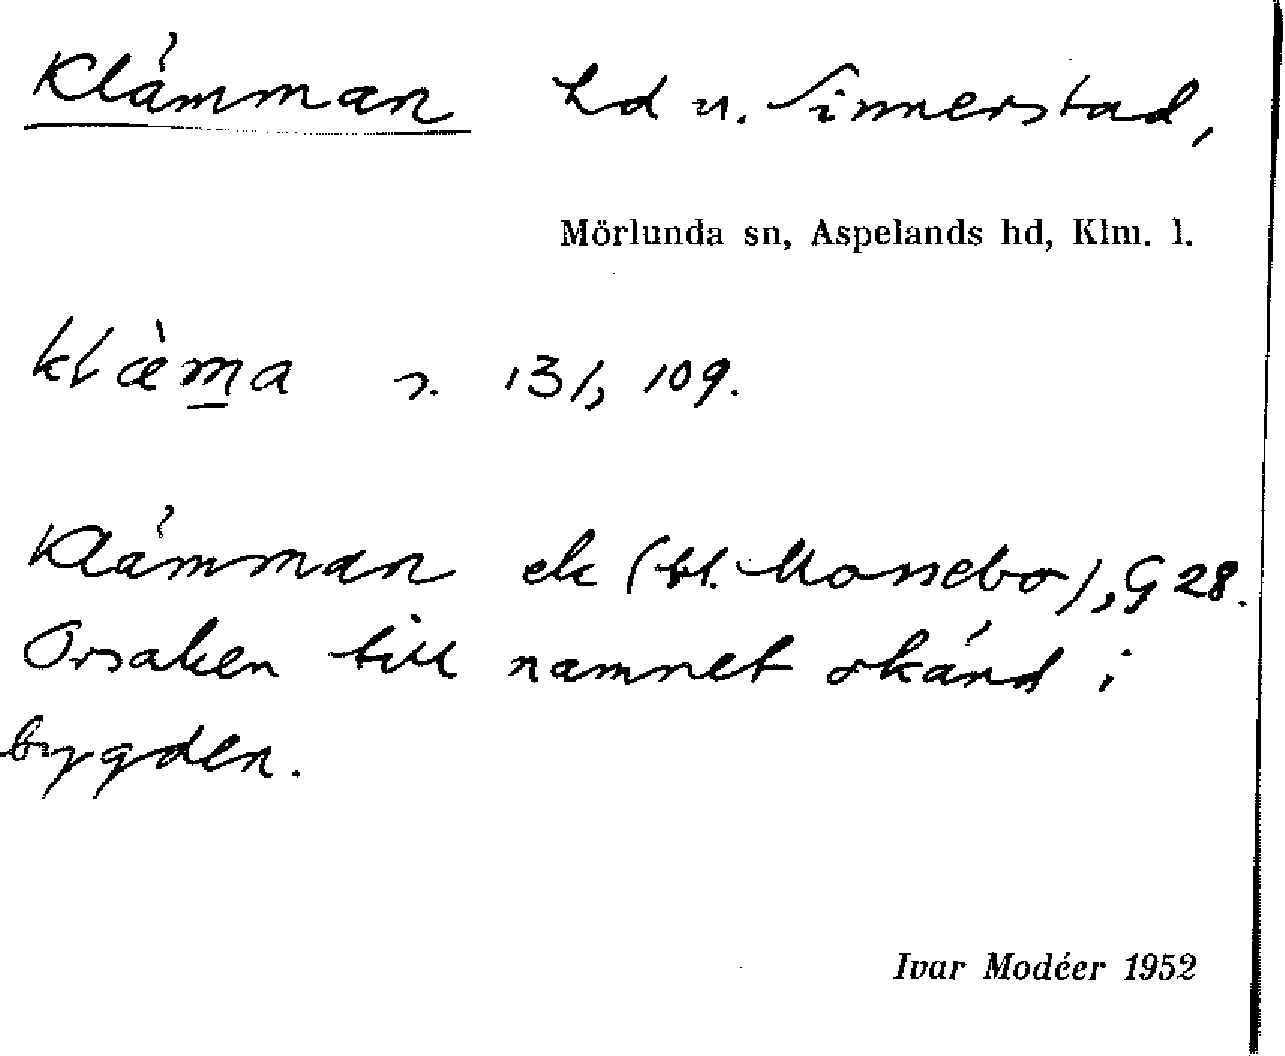 Klämman    hd u. Sinnerstad,
Mörlunda sn, Aspelands hd, Klm. l.
klæ̀m̲a    s. 131, 109.
Klämman    ek (bl. Mossebo), G 28.
Orsaken till namnet okänd i
bygden.
Ivar Modéer 1952